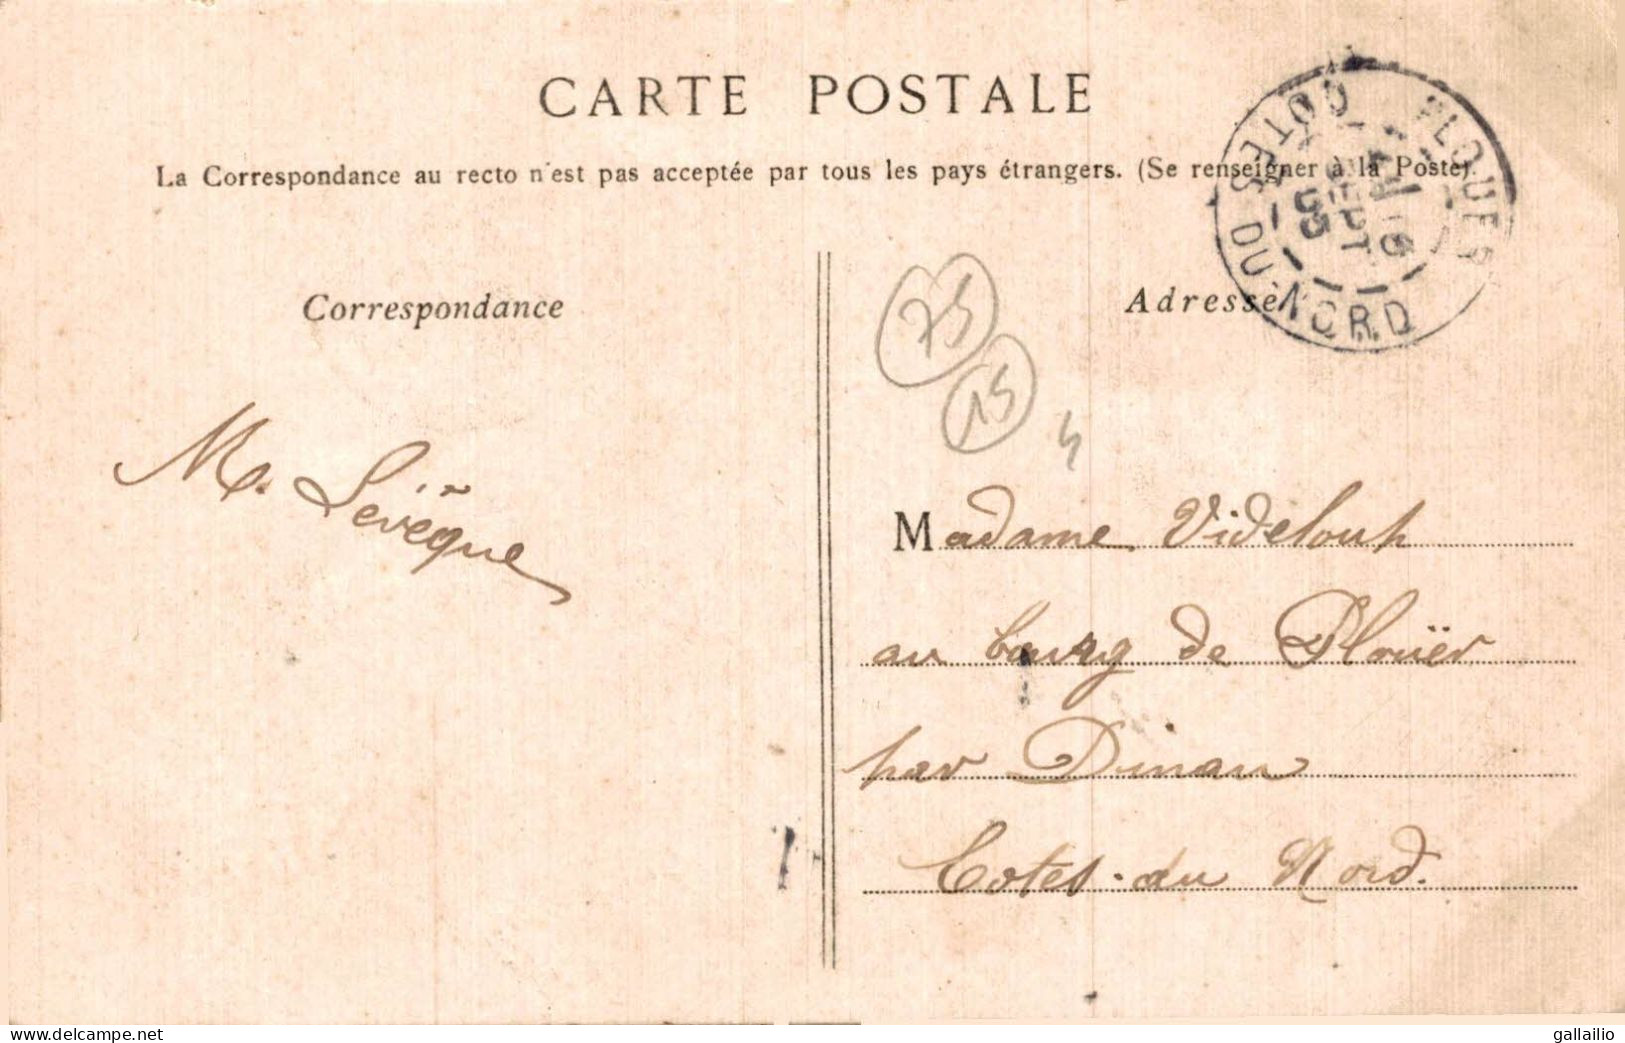 CARTE POSTALE
La Correspondance au recto n'est pas acceptée par tous les pays étrangers. (Se renseigner à la Poste).
PLOUER
COTES DU NORD
16
SEPT
Correspondance
Adresse
75
15
M. Levêque
Madame Videloup
au bourg de Plouër
par Dinan
Cotes-du Nord.
www.delcampe.net
gallailio